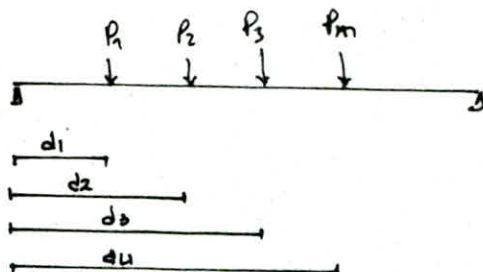 P1 P2 P3 Pm
d1
d2
d3
d4